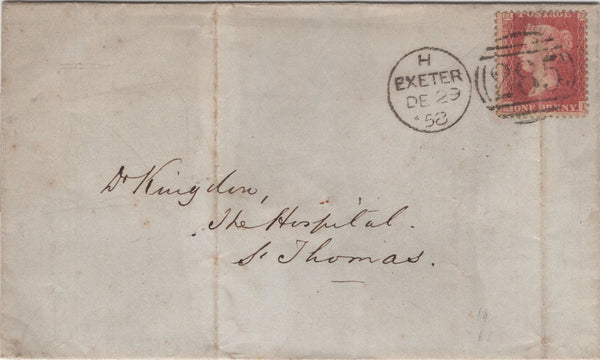 POSTAGE
H
EXETER
DE 29
58
285
ONE PENNY
Dr Kingdon,
The Hospital.
St Thomas.